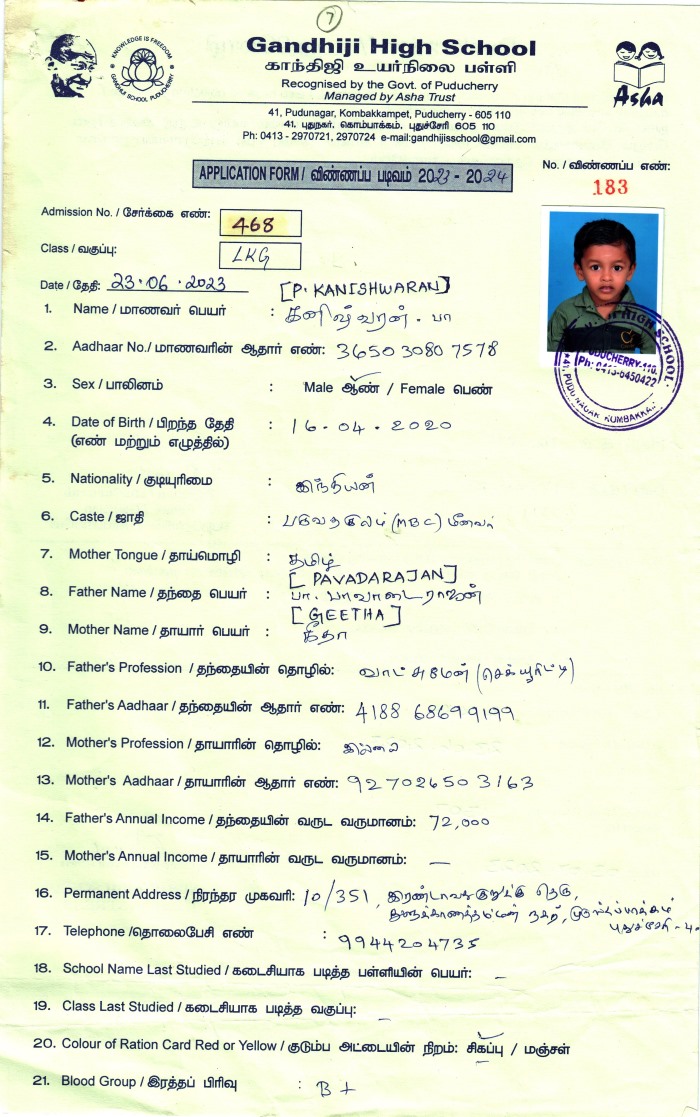 7
KNOWLEDGE IS FREEDOM
GANDHIJI SCHOOL PUDUCHERRY
Gandhiji High School
காந்திஜி உயர்நிலை பள்ளி
Recognised by the Govt. of Puducherry
Managed by Asha Trust
Asha
41, Pudunagar, Kombakkampet, Puducherry - 605 110
41. புதுநகர். கொம்பாக்கம். புதுச்சேரி 605 110
Ph: 0413 - 2970721, 2970724 e-mail:gandhijisschool@gmail.com
APPLICATION FORM / விண்ணப்ப படிவம் 2023 - 2024
No. / விண்ணப்ப எண்:
183
Admission No. / சேர்க்கை எண்: 468
Class / வகுப்பு: LKG
Date / தேதி: 23.06.2023
[P. KANISHWARAN]
1. Name / மாணவர் பெயர் : கனிஷ்வரன் . பா
2. Aadhaar No./ மாணவரின் ஆதார் எண்: 3650 3080 7578
3. Sex / பாலினம் : Male ஆண் / Female பெண்
4. Date of Birth / பிறந்த தேதி : 16-04-2020
(எண் மற்றும் எழுத்தில்)
5. Nationality / குடியுரிமை : இந்தியன்
6. Caste / ஜாதி : பருவதகுலம் (MBC) மீனவர்
7. Mother Tongue / தாய்மொழி : தமிழ்
[PAVADARAJAN]
8. Father Name / தந்தை பெயர் : பா. பாவாடைராஜன்
[GEETHA]
9. Mother Name / தாயார் பெயர் : கீதா
10. Father's Profession / தந்தையின் தொழில்: வாட்சுமேன் (செக்யூரிட்டி)
11. Father's Aadhaar / தந்தையின் ஆதார் எண்: 4188 6869 9199
12. Mother's Profession / தாயாரின் தொழில்: இல்லை
13. Mother's Aadhaar / தாயாரின் ஆதார் எண்: 9270 2650 3163
14. Father's Annual Income / தந்தையின் வருட வருமானம்: 72,000
15. Mother's Annual Income / தாயாரின் வருட வருமானம்: —
16. Permanent Address / நிரந்தர முகவரி: 10/351, இரண்டாவது குறுக்கு தெரு,
நகர், முருங்கப்பாக்கம்
புதுச்சேரி - 4
17. Telephone /தொலைபேசி எண் : 9944204735
18. School Name Last Studied / கடைசியாக படித்த பள்ளியின் பெயர்: –
19. Class Last Studied / கடைசியாக படித்த வகுப்பு: –
20. Colour of Ration Card Red or Yellow / குடும்ப அட்டையின் நிறம்: சிகப்பு / மஞ்சள்
21. Blood Group / இரத்தப் பிரிவு : B +
HIGH SCHOOL
PUDUCHERRY-110.
Ph: 0413-6450422